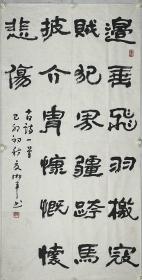 邊垂飛羽檄寇
賊犯界疆跨馬
披介胄慷慨懷
悲傷
古詩一首
己卯初秋